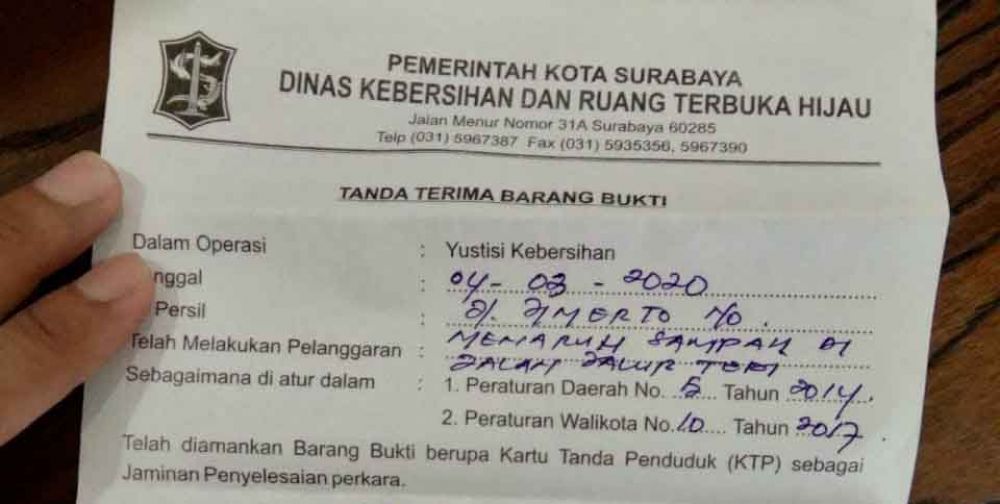 PEMERINTAH KOTA SURABAYA
DINAS KEBERSIHAN DAN RUANG TERBUKA HIJAU
Jalan Menur Nomor 31A Surabaya 60285
Telp (031) 5967387 Fax (031) 5935356, 5967390
TANDA TERIMA BARANG BUKTI
Dalam Operasi : Yustisi Kebersihan
nggal : 04 - 03 - 2020
Persil : Jl. JIMERTO NO.
Telah Melakukan Pelanggaran : MENARUH SAMPAH DI
DALAM JALUR
Sebagaimana di atur dalam : 1. Peraturan Daerah No. 5 Tahun 2014.
2. Peraturan Walikota No. 10 Tahun 2017.
Telah diamankan Barang Bukti berupa Kartu Tanda Penduduk (KTP) sebagai
Jaminan Penyelesaian perkara.